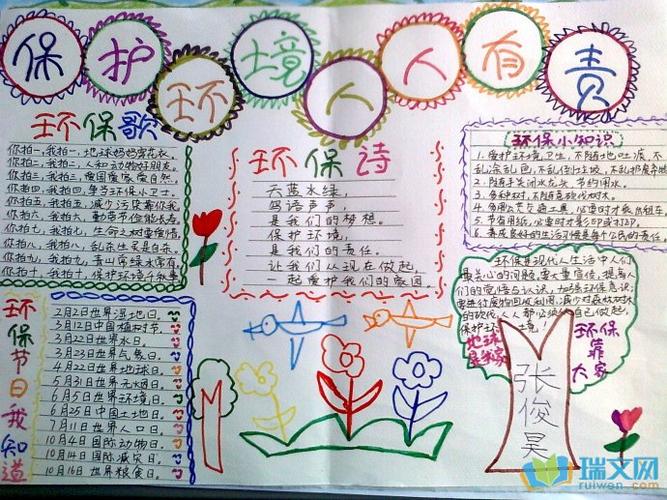 保护环境人人有责
环保歌
你拍一,我拍一,地球妈妈穿花衣。
你拍二,我拍二,人和动物好朋友。
你拍三,我拍三,爱国爱家爱自然。
你拍四,我拍四,争当环保小卫士。
你拍五,我拍五,减少污染靠你我。
你拍六,我拍六,勤俭节俭能长寿。
你拍七,我拍七,生命之树要爱惜。
你拍八,我拍八,乱杀生灵是自杀。
你拍九,我拍九,青山常绿水常有。
你拍十,我拍十,保护环境
环保诗
天蓝水绿,
鸟语声声,
是我们的梦想。
保护环境,
是我们的责任。
让我们从现在做起,
一起爱护我们的家园。
环保小知识
1.爱护环境卫生,不随地吐痰,不
乱涂乱色,不乱倒垃圾,不乱扔废弃物
2.随手关闭水龙头,节约用水。
3.多种树,不随意砍伐树木。
4.多用公共交通工具,必要时才乘出租车。
5.节省用纸,必要时才影印或打印。
6.养成良好的生活习惯是每个公民的责任。
环保是现代人生活中人们
最关心的问题,要大量宣传,提高人
们的觉悟与认识,加强环保意识;
要进行废物回收利用,减少对森林树木
的砍伐,人人都必须从自己做起,
保护环境!
地球是我家
环保靠大家
张俊昊
环保节日我知道
2月2日世界湿地日。
3月12日中国植树节。
3月22日世界水日。
3月23日世界气象日。
4月22日世界地球日。
5月31日世界无烟日。
6月5日世界环境日。
6月25日中国土地日。
7月11日世界人口日。
10月4日国际动物日。
10月14日国际减灾日。
10月16日世界粮食日。
瑞文网
ruiwen.com